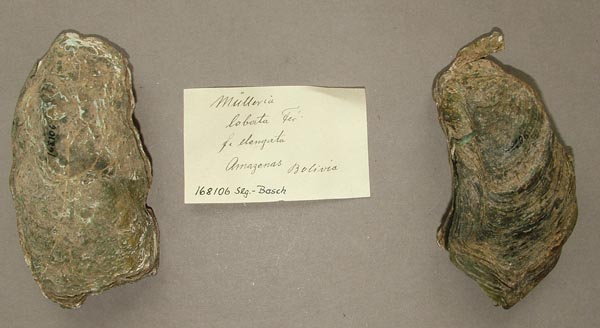 Mülleria
lobata Fér
f. elongata
Amazonas Bolivia
168106 Slg.-Bosch